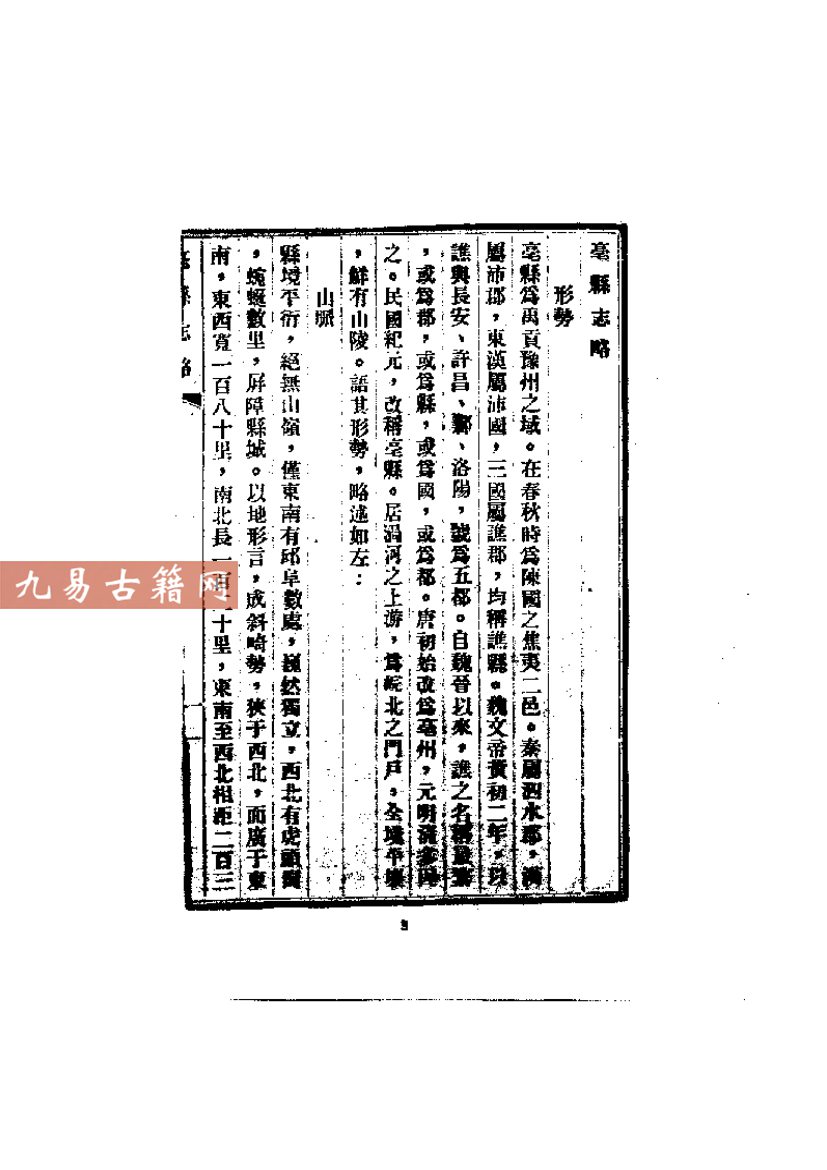 亳縣志略
形勢
亳縣爲禹貢豫州之域。在春秋時爲陳國之焦夷二邑。秦屬泗水郡，漢
屬沛郡，東漢屬沛國，三國屬譙郡，均稱譙縣。魏文帝黃初二年，以
譙與長安、許昌、鄴、洛陽，號爲五都。自魏晉以來，譙之名稱
，或爲郡，或爲縣，或爲國，或爲都。唐初始改爲亳州，元明清多因
之。民國紀元，改稱亳縣。居渦河之上游，爲皖北之門戶，全境平壤
，鮮有山陵。語其形勢，略述如左：
山脈
縣境平衍，絕無山嶺，僅東南有邱阜數處，巍然獨立，西北有虎頭崗
，蜿蜒數里，屏障縣城。以地形言，成斜崎勢，狹于西北，而廣于東
南，東西寬一百八十里，南北長一百二十里，東南至西北相距二百三
亳縣志略
一
九易古籍网